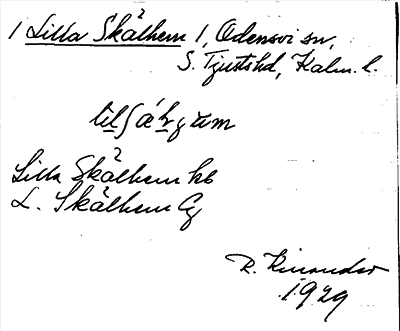 1 Lilla Skålhem 1, Odensvi sn,
S. Tjusts hd, Kalm. l.
Lilla Skålhem kb
L. Skålhem Cg
R. Kinander
1929